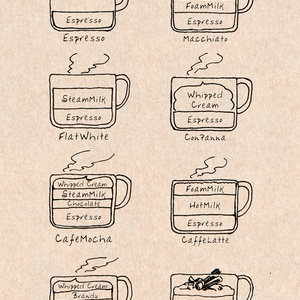 Espresso
Espresso
FoamMilk
Espresso
Macchiato
SteamMilk
Espresso
FlatWhite
Whipped
Cream
Espresso
ConPanna
Whipped Cream
SteamMilk
Chocolate
Espresso
CafeMocha
FoamMilk
HotMilk
Espresso
CaffeLatte
Whipped Cream
Brandy